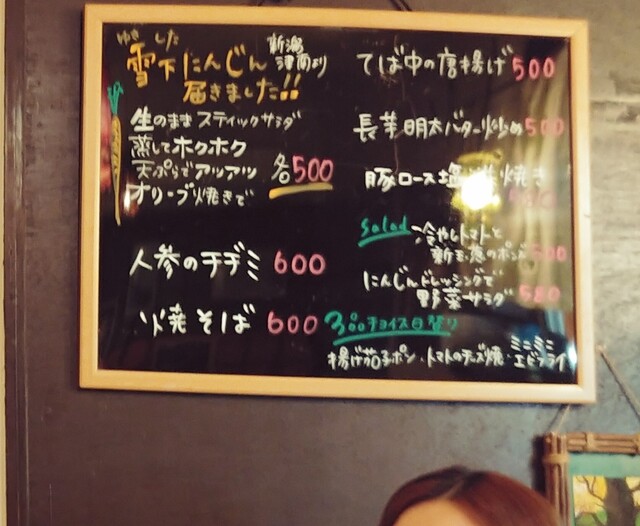 ゆき した
雪下にんじん
新潟
津南より
届きました!!
生のままスティックサラダ
蒸してホクホク
天ぷらでアツアツ
オリーブ焼きで
各500
人参のチヂミ 600
焼そば 600
てば中の唐揚げ 500
長芋明太バター炒め 500
豚ロース塩 焼き
Salad
冷やしトマトと
新玉葱のポン 500
にんじんドレッシングで
野菜サラダ 580
300チョイス日替り
揚げ茄子ポン・トマトのチーズ焼・ミニミニ
エビフライ